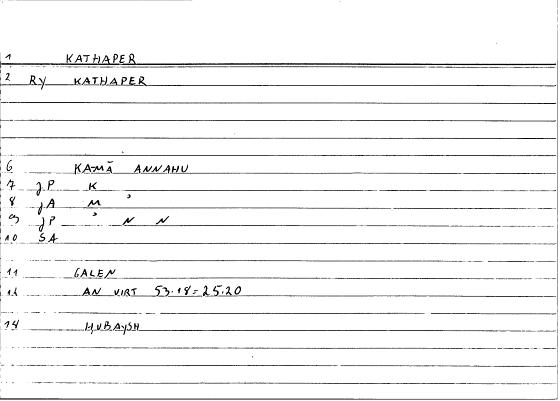 1 KATHAPER
2 Ry KATHAPER
6 KAMĀ ANNAHU
7 jP K
8 jA M ʾ
9 jP ʾ N N
10 SA
11 GALEN
12 AN VIRT 53.18=25.20
14 ḤUBAYSH